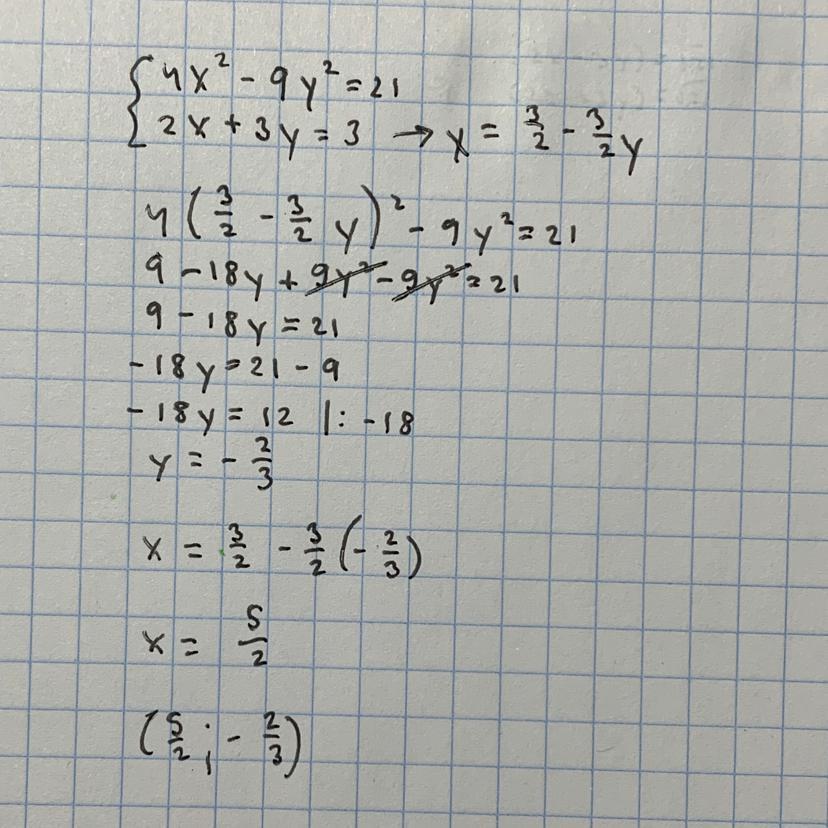 4x² - 9y² = 21
2x + 3y = 3 → x = 3/2 - 3/2 y
4(3/2 - 3/2 y)² - 9y² = 21
9 - 18y + 9y² - 9y² = 21
9 - 18y = 21
-18y = 21 - 9
-18y = 12 |: -18
y = - 2/3
x = 3/2 - 3/2 (- 2/3)
x = 5/2
(5/2 ; - 2/3)